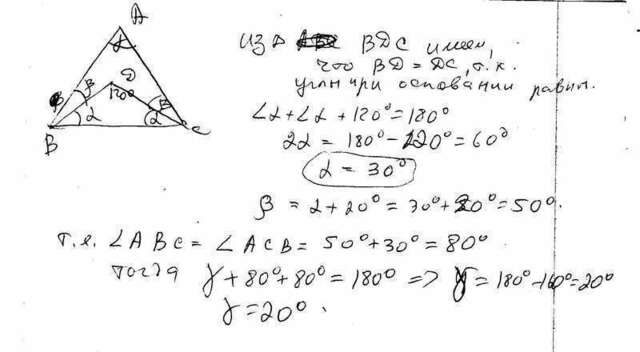 A
γ
D
β
120°
β
α
α
B
C
из △ BDC имеем,
что BD = DC, т.к.
углы при основании равны.
∠α + ∠α + 120° = 180°
2α = 180° - 120° = 60°
α = 30°
β = α + 20° = 30° + 20° = 50°.
т.е. ∠ABC = ∠ACB = 50° + 30° = 80°
тогда γ + 80° + 80° = 180° => γ = 180° - 160° = 20°
γ = 20°.